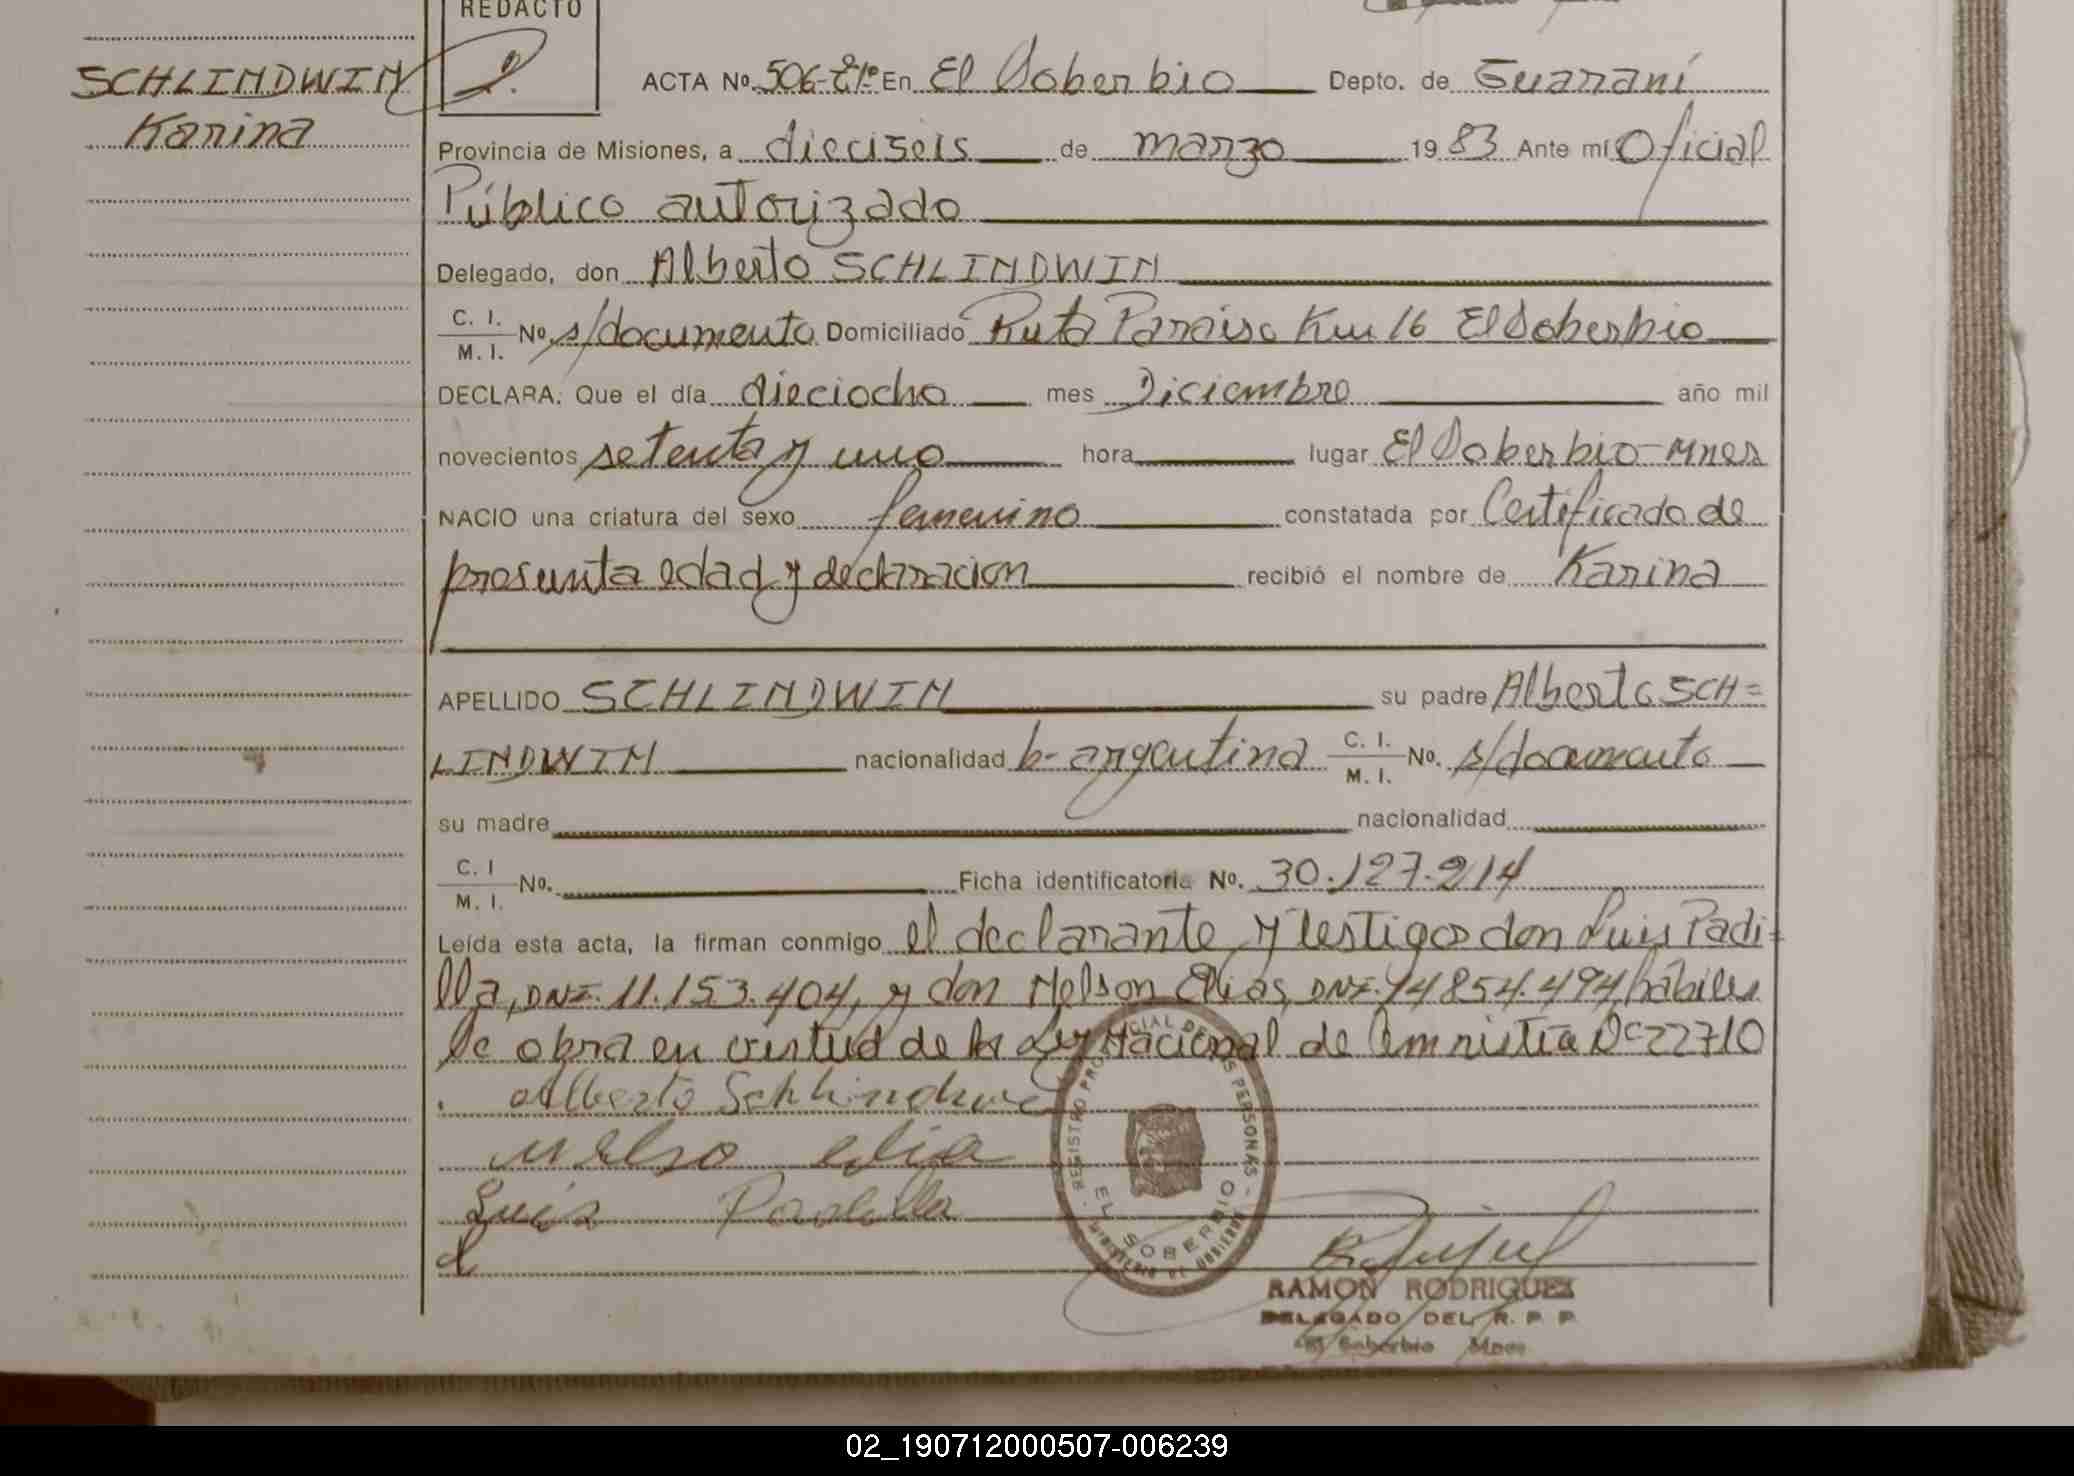 REDACTO
SCHLINDWIN
Karina
ACTA No. 506- En El Soberbio Depto. de Guaraní
Provincia de Misiones, a dieciseis de marzo 19 83 Ante mí Oficial
Público autorizado
Delegado, don Alberto SCHLINDWIN
C. I. M. I. No. s/documento Domiciliado Ruta Paraiso Km 16 El Soberbio
DECLARA: Que el día dieciocho mes Diciembre año mil
novecientos setenta y uno hora lugar El Soberbio-Mnes
NACIO una criatura del sexo femenino constatada por Certificado de
presunta edad y declaracion recibió el nombre de Karina
APELLIDO SCHLINDWIN su padre Alberto SCH=
LINDWIN nacionalidad b- argentina C. I. M. I. No. s/documento
su madre nacionalidad
C. I M. I. No. Ficha identificatoria No. 30.127.214
Leída esta acta, la firman conmigo el declarante y testigos don Luis Padi-
lla, DNI. 11.153.404, y don Nelson Elias, DNI. 14854.494, hábiles
Se obra en virtud de la Ley Nacional de Amnistia 22710
Alberto
Nelso elia
Luis Padilla
REGISTRO PROVINCIAL DE LAS PERSONAS - MINISTERIO DE GOBIERNO
EL SOBERBIO
RAMON RODRIGUEZ
DELEGADO DEL R. P. P.
El Soberbio Mnes
02_190712000507-006239